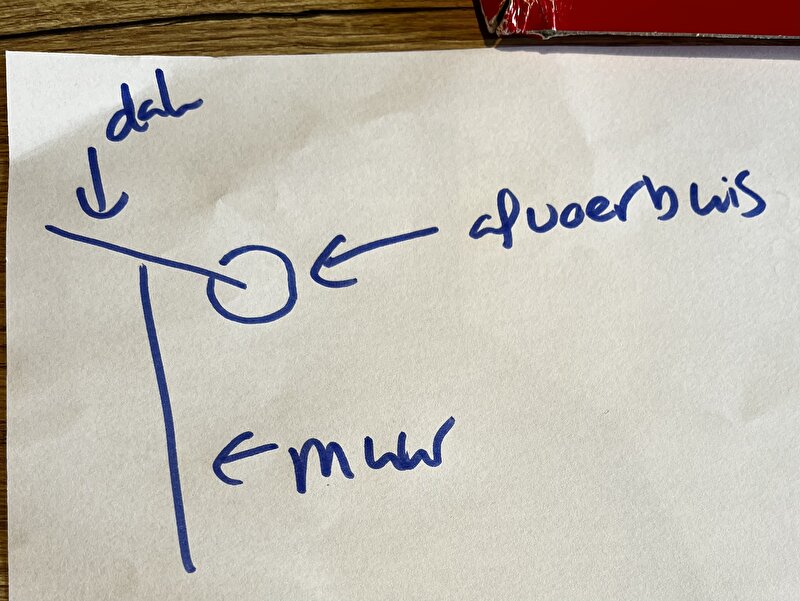 dak
afvoerbuis
muur